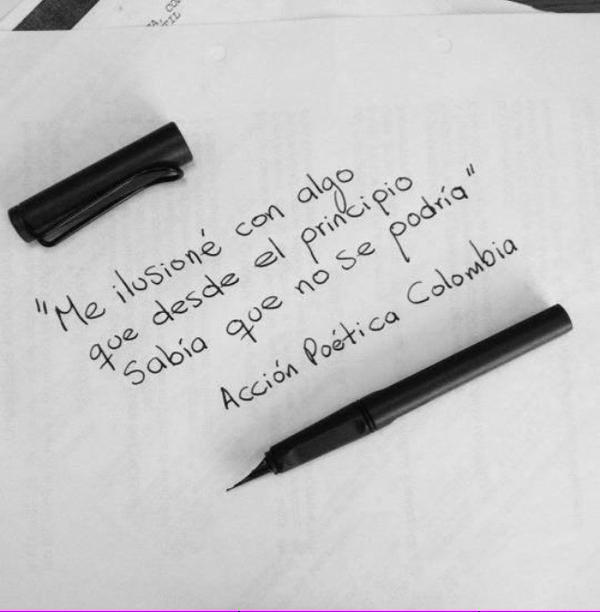 "Me ilusioné con algo
que desde el principio
Sabía que no se podría"
Acción Poética Colombia